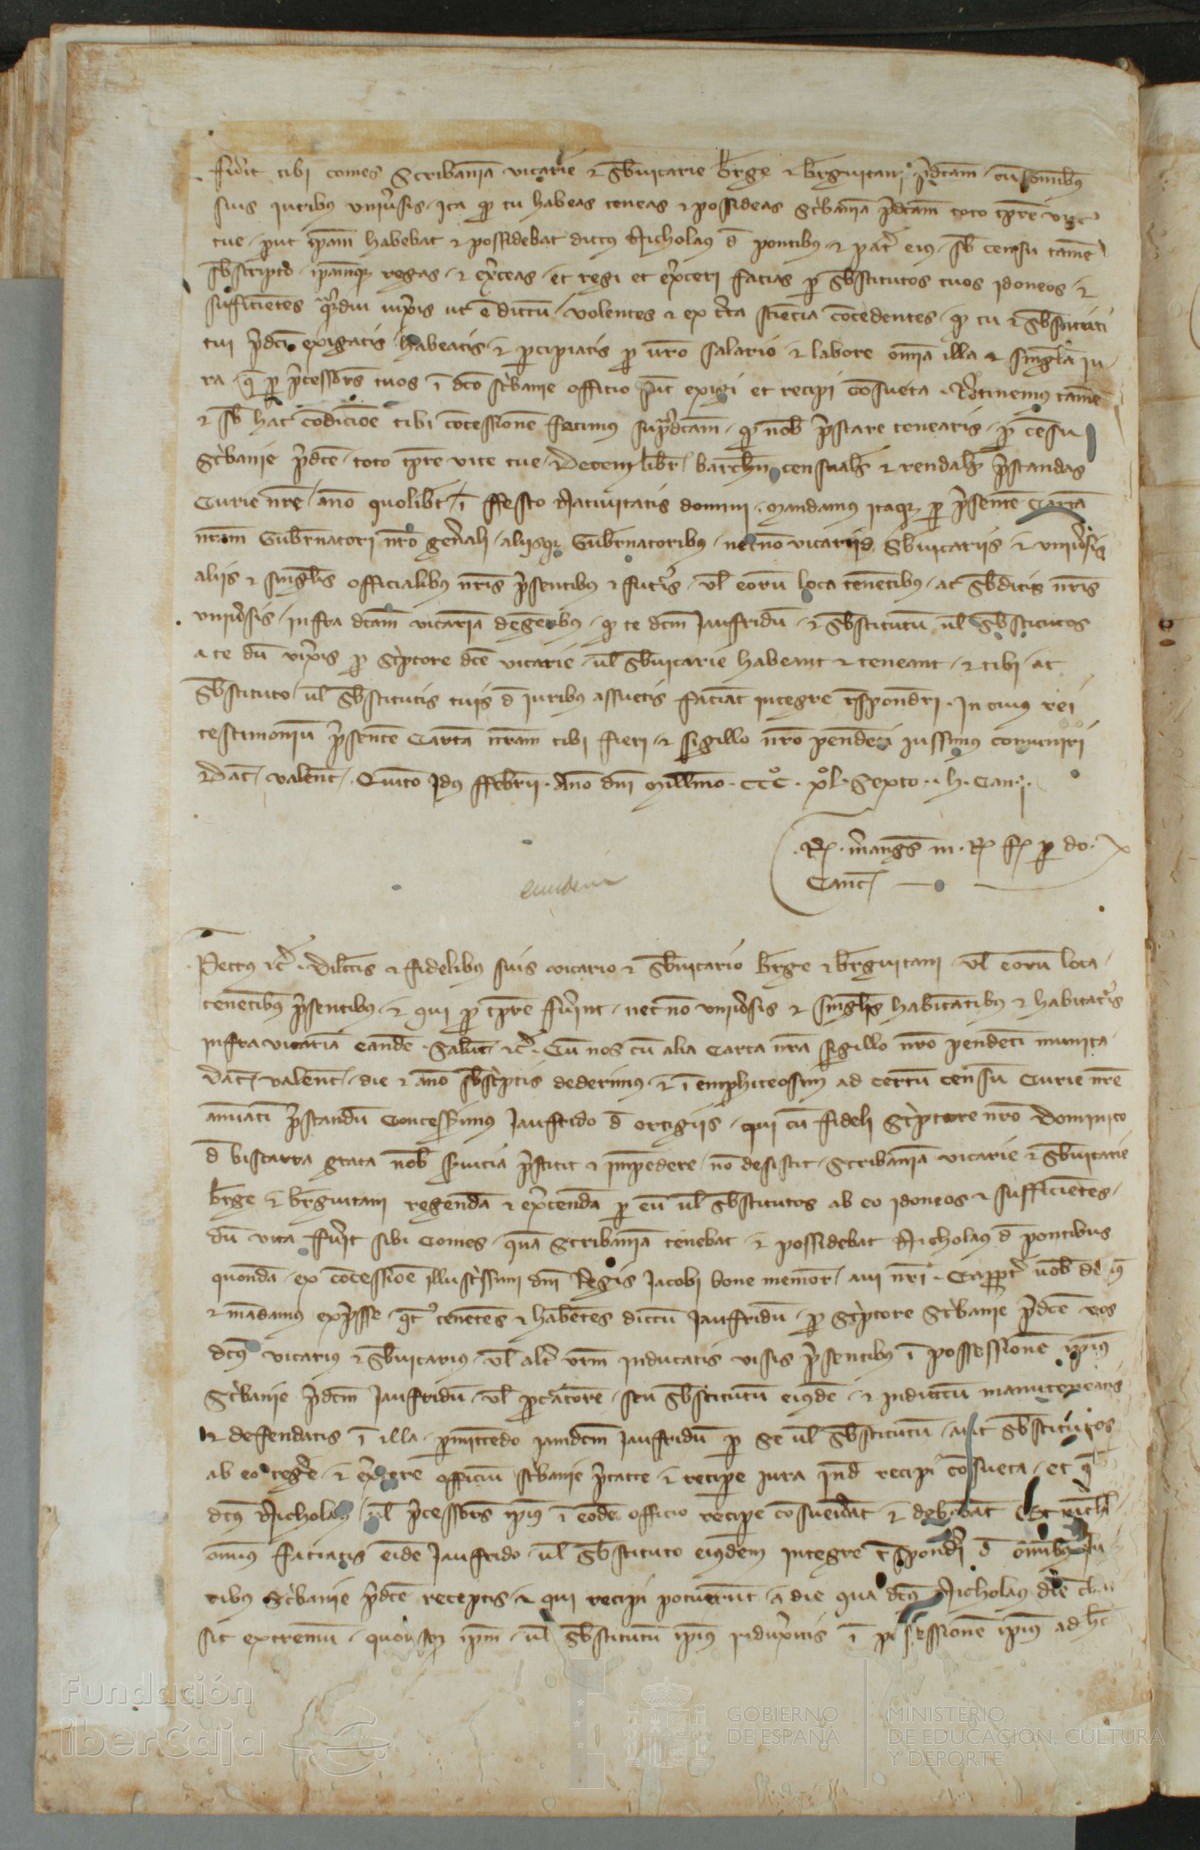 fuerit tibi comes Scribaniam vicarie et subvicarie berge et berguitani predictam cum omnibus
suis iuribus universis ita quod tu habeas teneas et possideas scribaniam predictam toto tempore vite
tue prout ipsam habebat et possidebat dictus Nicholaus de pontibus et pater eius sub censu tamen
subscripto ipsamque regas et exerceas et regi et exerceri facias per substitutos tuos idoneos et
sufficientes quamdiu vixeris ut est dictum volentes et ex certa sciencia concedentes quod tu et substituti
tui predicti exigatis habeatis et percipiatis pro vestro salario et labore omnia illa et singula iu
ra que per predecessores tuos in dicto scribanie officio sunt exigi et recipi consueta Retinemus tamen
et sub hac condicione tibi concessionem facimus supradictam quod nobis prestare tenearis pro censu
scribanie predicte toto tempore vite tue Decem libras barchinone censuales et rendales prestandas
Curie nostre anno quolibet in ffesto Nativitatis domini mandamus itaque per presentem Cartam
nostram Gubernatori nostro generali aliisque Gubernatoribus necnon vicariis subvicariis et universis
aliis et singulis officialibus nostris presentibus et futuris vel eorum loca tenentibus ac subditis nostris
universis infra dictam vicariam degentibus quod te dictum Jaufridum et substitutum vel substitutos
a te dum vixeris pro scriptore dicte vicarie vel subvicarie habeant et teneant et tibi ac
substituto vel substitutis tuis de iuribus assuetis faciant integre responderi In cuius rei
testimonium presentem Cartam nostram tibi fieri et sigillo nostro pendenti iussimus comuniri
Dat valent Quinto Idus ffebruarii Anno domini Millesimo CCC xl Sexto h Can
Can
eiusdem
Petrus etc Dilectis et fidelibus suis vicario et subvicario berge et berguitani vel eorum loca
tenentibus presentibus et qui pro tempore fuerint necnon universis et singulis habitantibus et habitaturis
infra vicariam eandem Salutem etc Cum nos cum alia Carta nostra sigillo nostro pendenti munita
dat valent die et anno subscriptis dederimus et in emphiteosim ad certum censum Curie nostre
annuatim prestandum Concesserimus Jaufrido de ortigiis qui cum fideli Scriptore nostro Dominico
de biscarra grata nobis servicia prestitit et impendere non desistit Scribaniam vicarie et subvicarie
berge et berguitani regendam et exercendam per eum vel substitutos ab eo idoneos et sufficientes
dum vita fuerit sibi Comes quam Scribaniam tenebat et possidebat Nicholaus de pontibus
quondam ex concessione illustrissimi domini Regis Jacobi bone memorie avi nostri Eapropter vobis dicimus
et mandamus expresse quatenus tenentes et habentes dictum Jaufridum pro Scriptore Scribanie predicte vos
dictus vicarius et subvicarius vel alter vestrum inducatis visis presentibus in possessionem ipsius
Scribanie predictum Jaufridum vel procuratorem seu substitutum eiusdem et inductum manuteneatis
et defendatis in illa permittendo iamdictum Jaufridum per se vel substitutum aut substitutos
ab eo regere et exercere officium scribanie pretacte et recipere iura inde recipi consueta et que
dictus Nicholaus vel predecessores ipsius in eodem officio recipere consueverant et debebant Et
omnis faciatis eidem Jaufrido vel substituto eiusdem integre responderi de omnibus iu
ribus Scribanie predicte receptis et qui recipi potuerunt a die qua dictus Nicholaus diem clau
sit extremum quousque ipsum vel substitutum ipsius induxeritis in possessionem ipsius ad hec
Fundación
iberCaja
GOBIERNO
DE ESPAÑA
MINISTERIO
DE EDUCACIÓN, CULTURA
Y DEPORTE